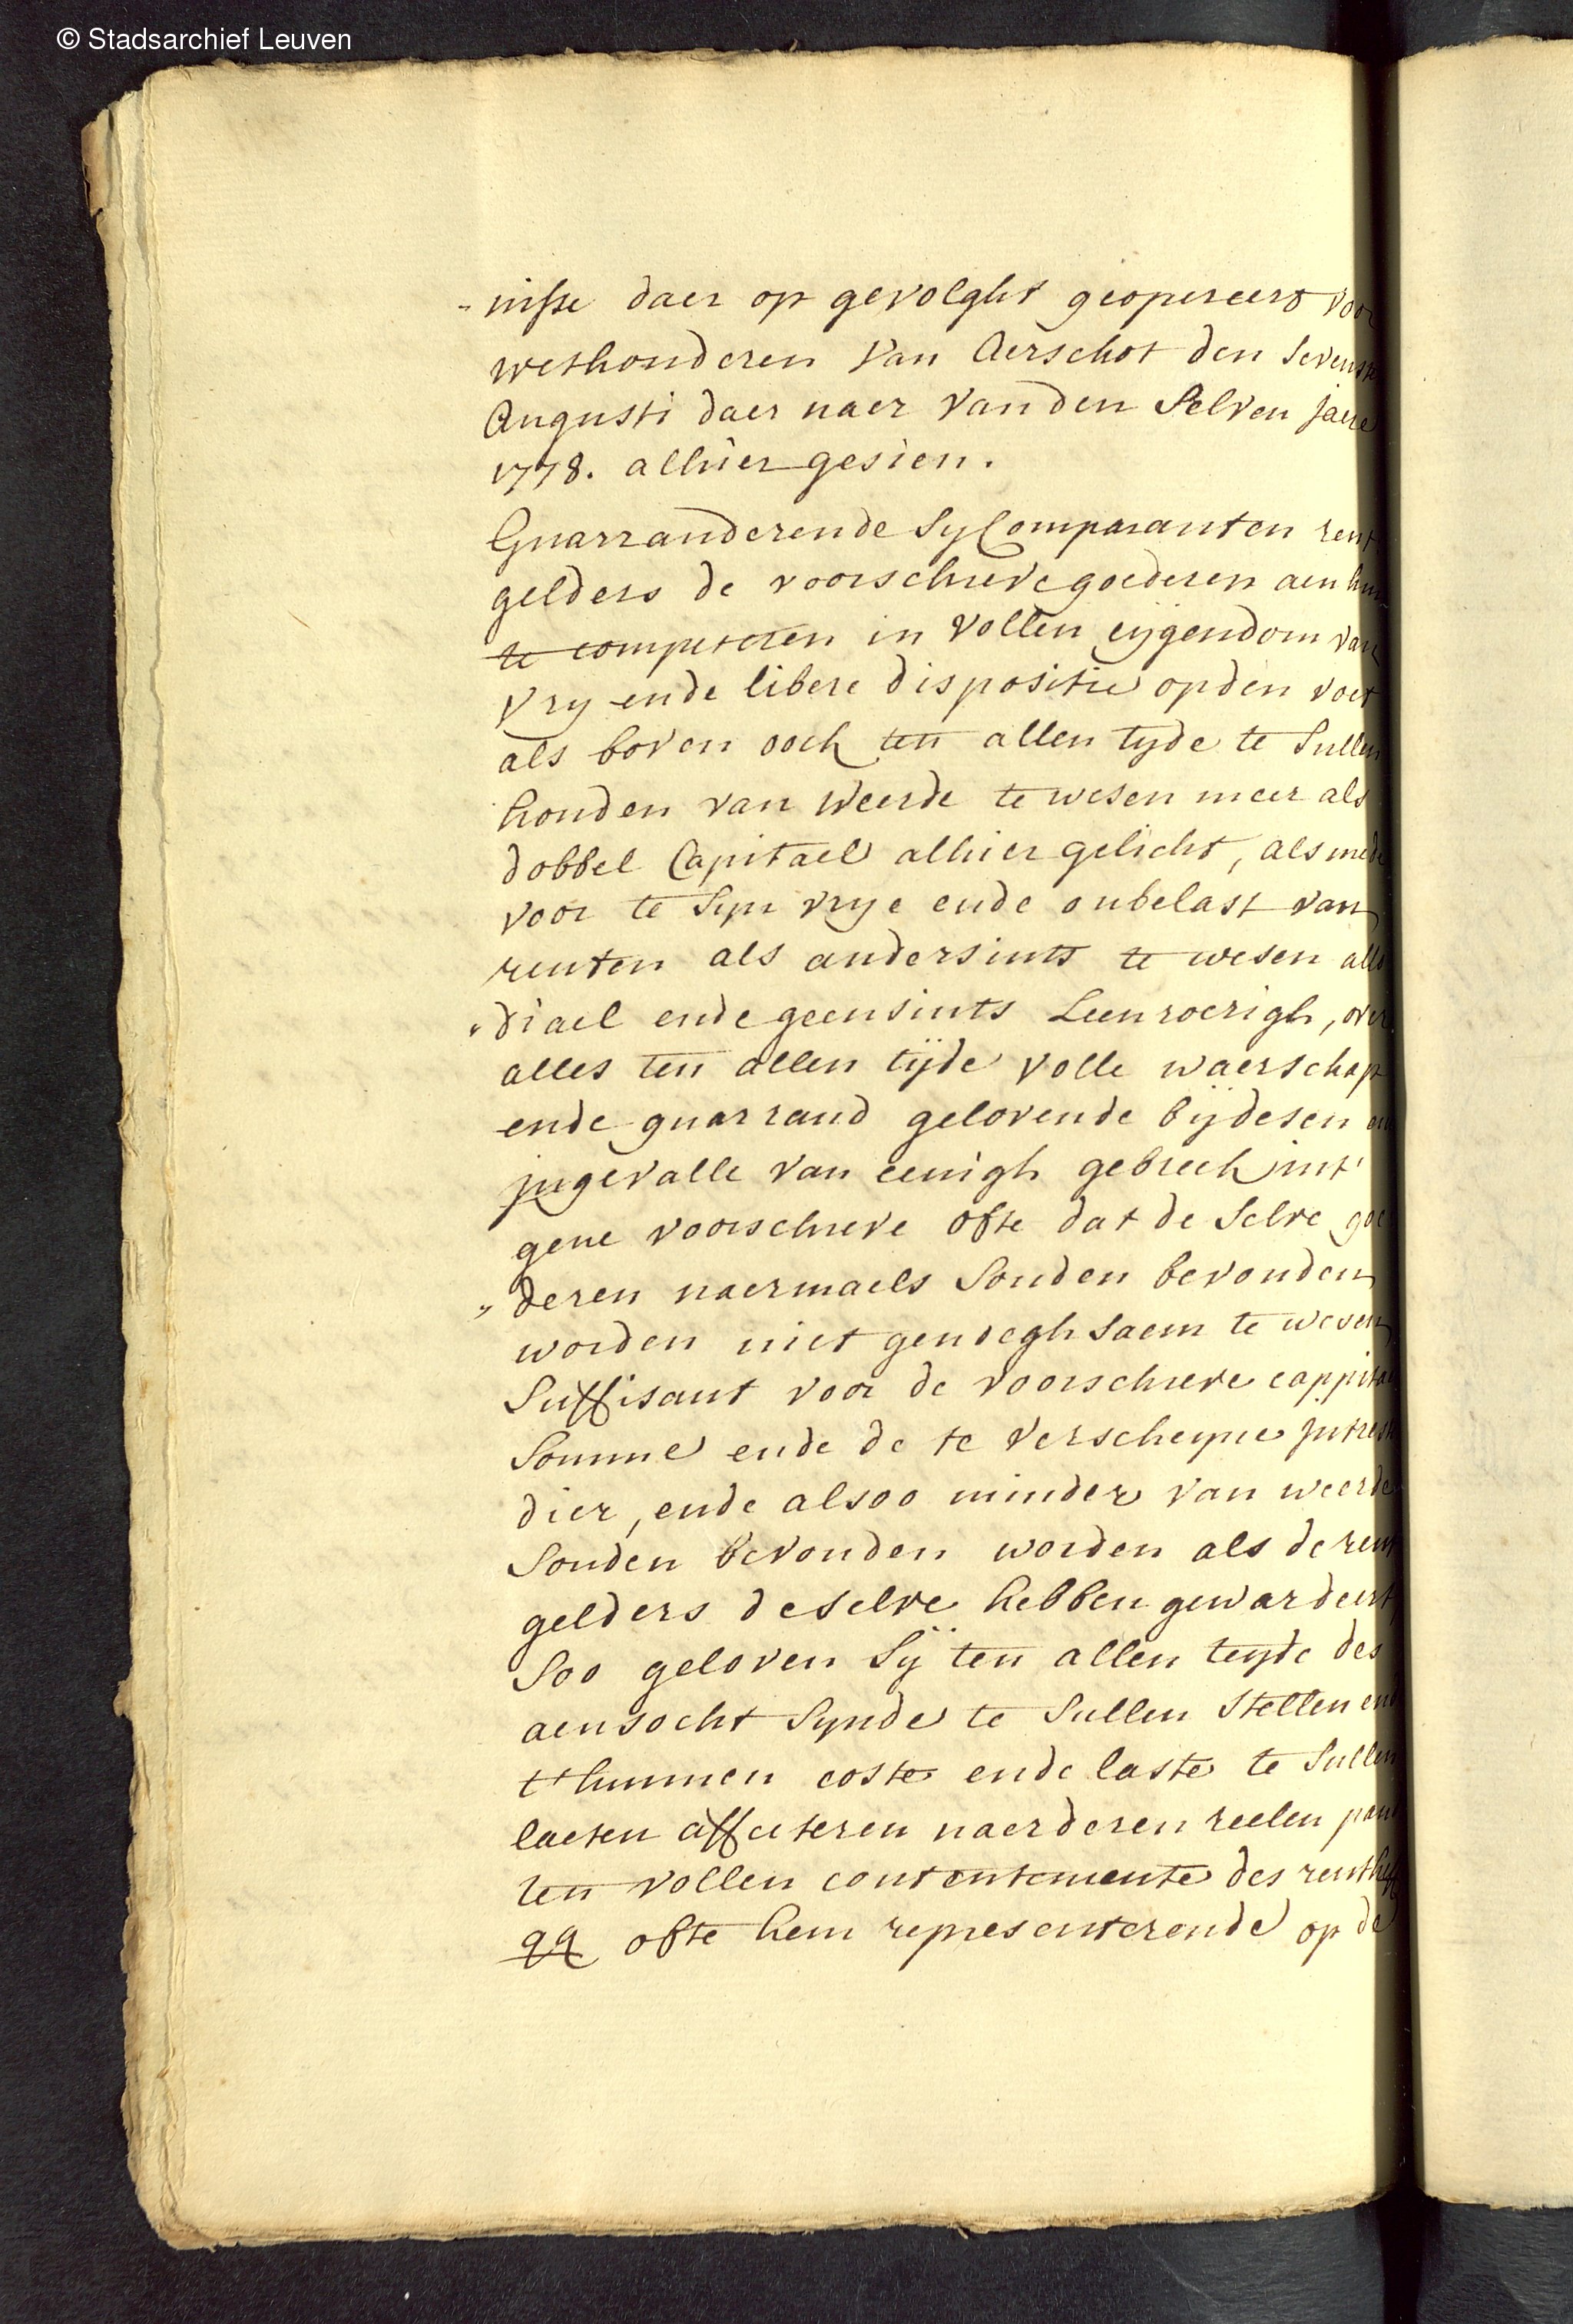 © Stadsarchief Leuven
-nisse daer op gevolght geopereert voor
wethouderen van Aerschot den sevensten
Augusti daer naer van den selven jaere
1778. alhier gesien.
Guarranderende sy Comparanten rent
gelders de voorschreve goederen aen hun
te competeren in vollen eijgendom van
vry ende libere dispositie op den voet
als boven ooch ten allen tyde te sullen
houden van weerde te wesen meer als
dobbel Capitael alhier gelicht, als mede
voor te syn vrye ende onbelast van
renten als andersints te wesen allo
"diael ende geensints Leenroerigh, over
alles ten allen tijde volle waerschap
ende guarrand gelovende bijdesen en
ingevalle van eenigh gebreck int'
gene voorschreve ofte dat de selve goe
"deren naermaels souden bevonden
worden niet genoeghsaem te wesen,
suffisant voor de voorschreve cappitale
somme ende de te verscheyne intresten
dier, ende alsoo minder van weerde
souden bevonden worden als de rent
gelders deselve hebben gewardeert
soo geloven sij ten allen teyde des
aensocht synde te sullen stellen ende
t'hunnen coste ende laste te sullen
laeten affecteren naerderen reelen pand
ten vollen contentemente des rentheff
qq ofte hem representerende op de